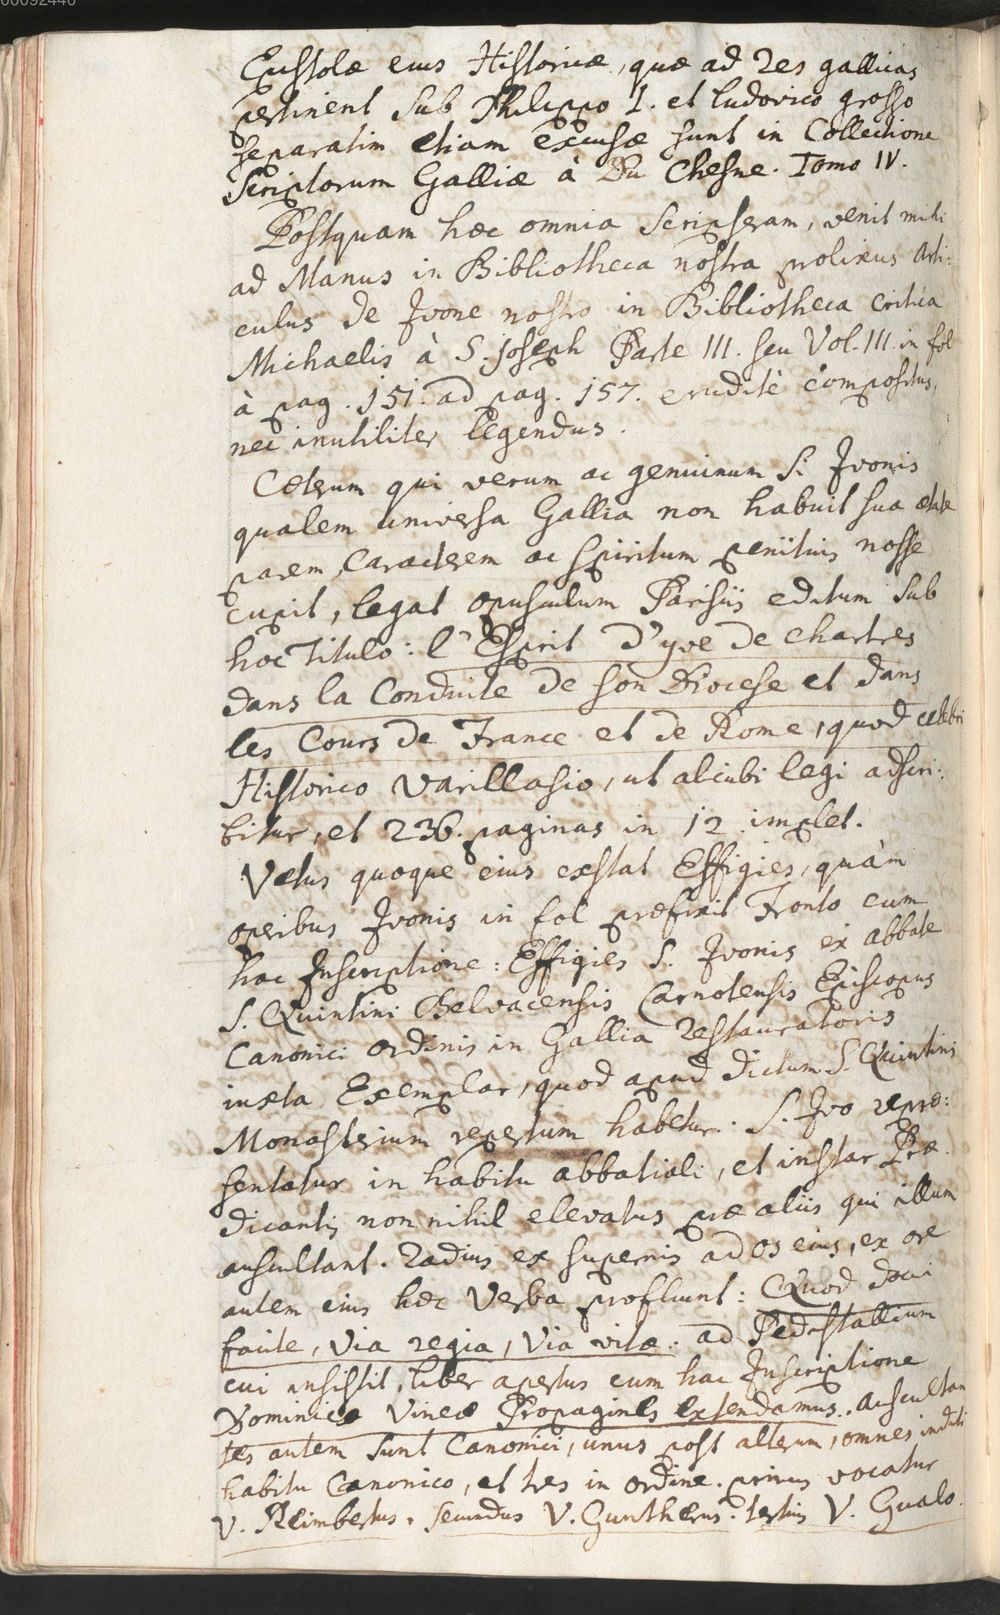 00092440
Epistolæ eius Historicæ, quæ ad res gallicas
pertinent sub Philippo I. et Ludovico grosso
separatim etiam excusæ sunt in Collectione
Scriptorum Galliæ à Du Chesne. Tomo IV.
Postquam hæc omnia scripseram, venit mihi
ad Manus in Bibliotheca nostra prolixus Arti:
culus de Ivone nostro in Bibliotheca critica
Michaelis à S. Joseph Parte III. seu Vol. III. in fol
à pag. 151. ad pag. 157. eruditè compositus,
nec inutiliter legendus.
Cæterum qui verum ac genuinum S. Ivonis
qualem universa Gallia non habuit sua ætate
parem, Caracterem ac spiritum penitius nosse
cupit, legat opusculum Parisiis editum sub
hoc Titulo: l'Esprit d'yve de Chartres
dans la Conduite de son Diocese et dans
les Cours de France et de Rome, quod celebri
Historico Varillasio, ut alicubi legi adscri:
bitur, et 236. paginas in 12 implet.
Vetus quoque eius exstat Effigies, quàm
operibus Ivonis in fol præfixit Fronto cum
hac Inscriptione: Effigies S. Ivonis ex abbate
S. Quintini Belvacensis Carnotensis Episcopus
Canonici ordinis in Gallia restauratoris
iuxta Exemplar, quod apud dictum S. Quintini
Monasterium repertum habetur. S. Ivo repræ:
sentatur in habitu abbatiali, et instar Præ
dicantis non nihil elevatus præ aliis qui illum
auscultant. Radius ex supernis ad os eius, ex ore
autem eius hæc Verba profluunt: Quod docui
facite, via regia, via vitæ. ad Pedistallium
cui insistit, liber apertus cum hac Inscriptione
Dominicæ Vineæ Propagines extendamus. Ausculltan
tes autem sunt Canonici, unus post alterum, omnes induti
habitu Canonico, et tres in ordine. primus vocatur
V. Reimbertus. secundus V. Guntherus. tertius V. Gualo.